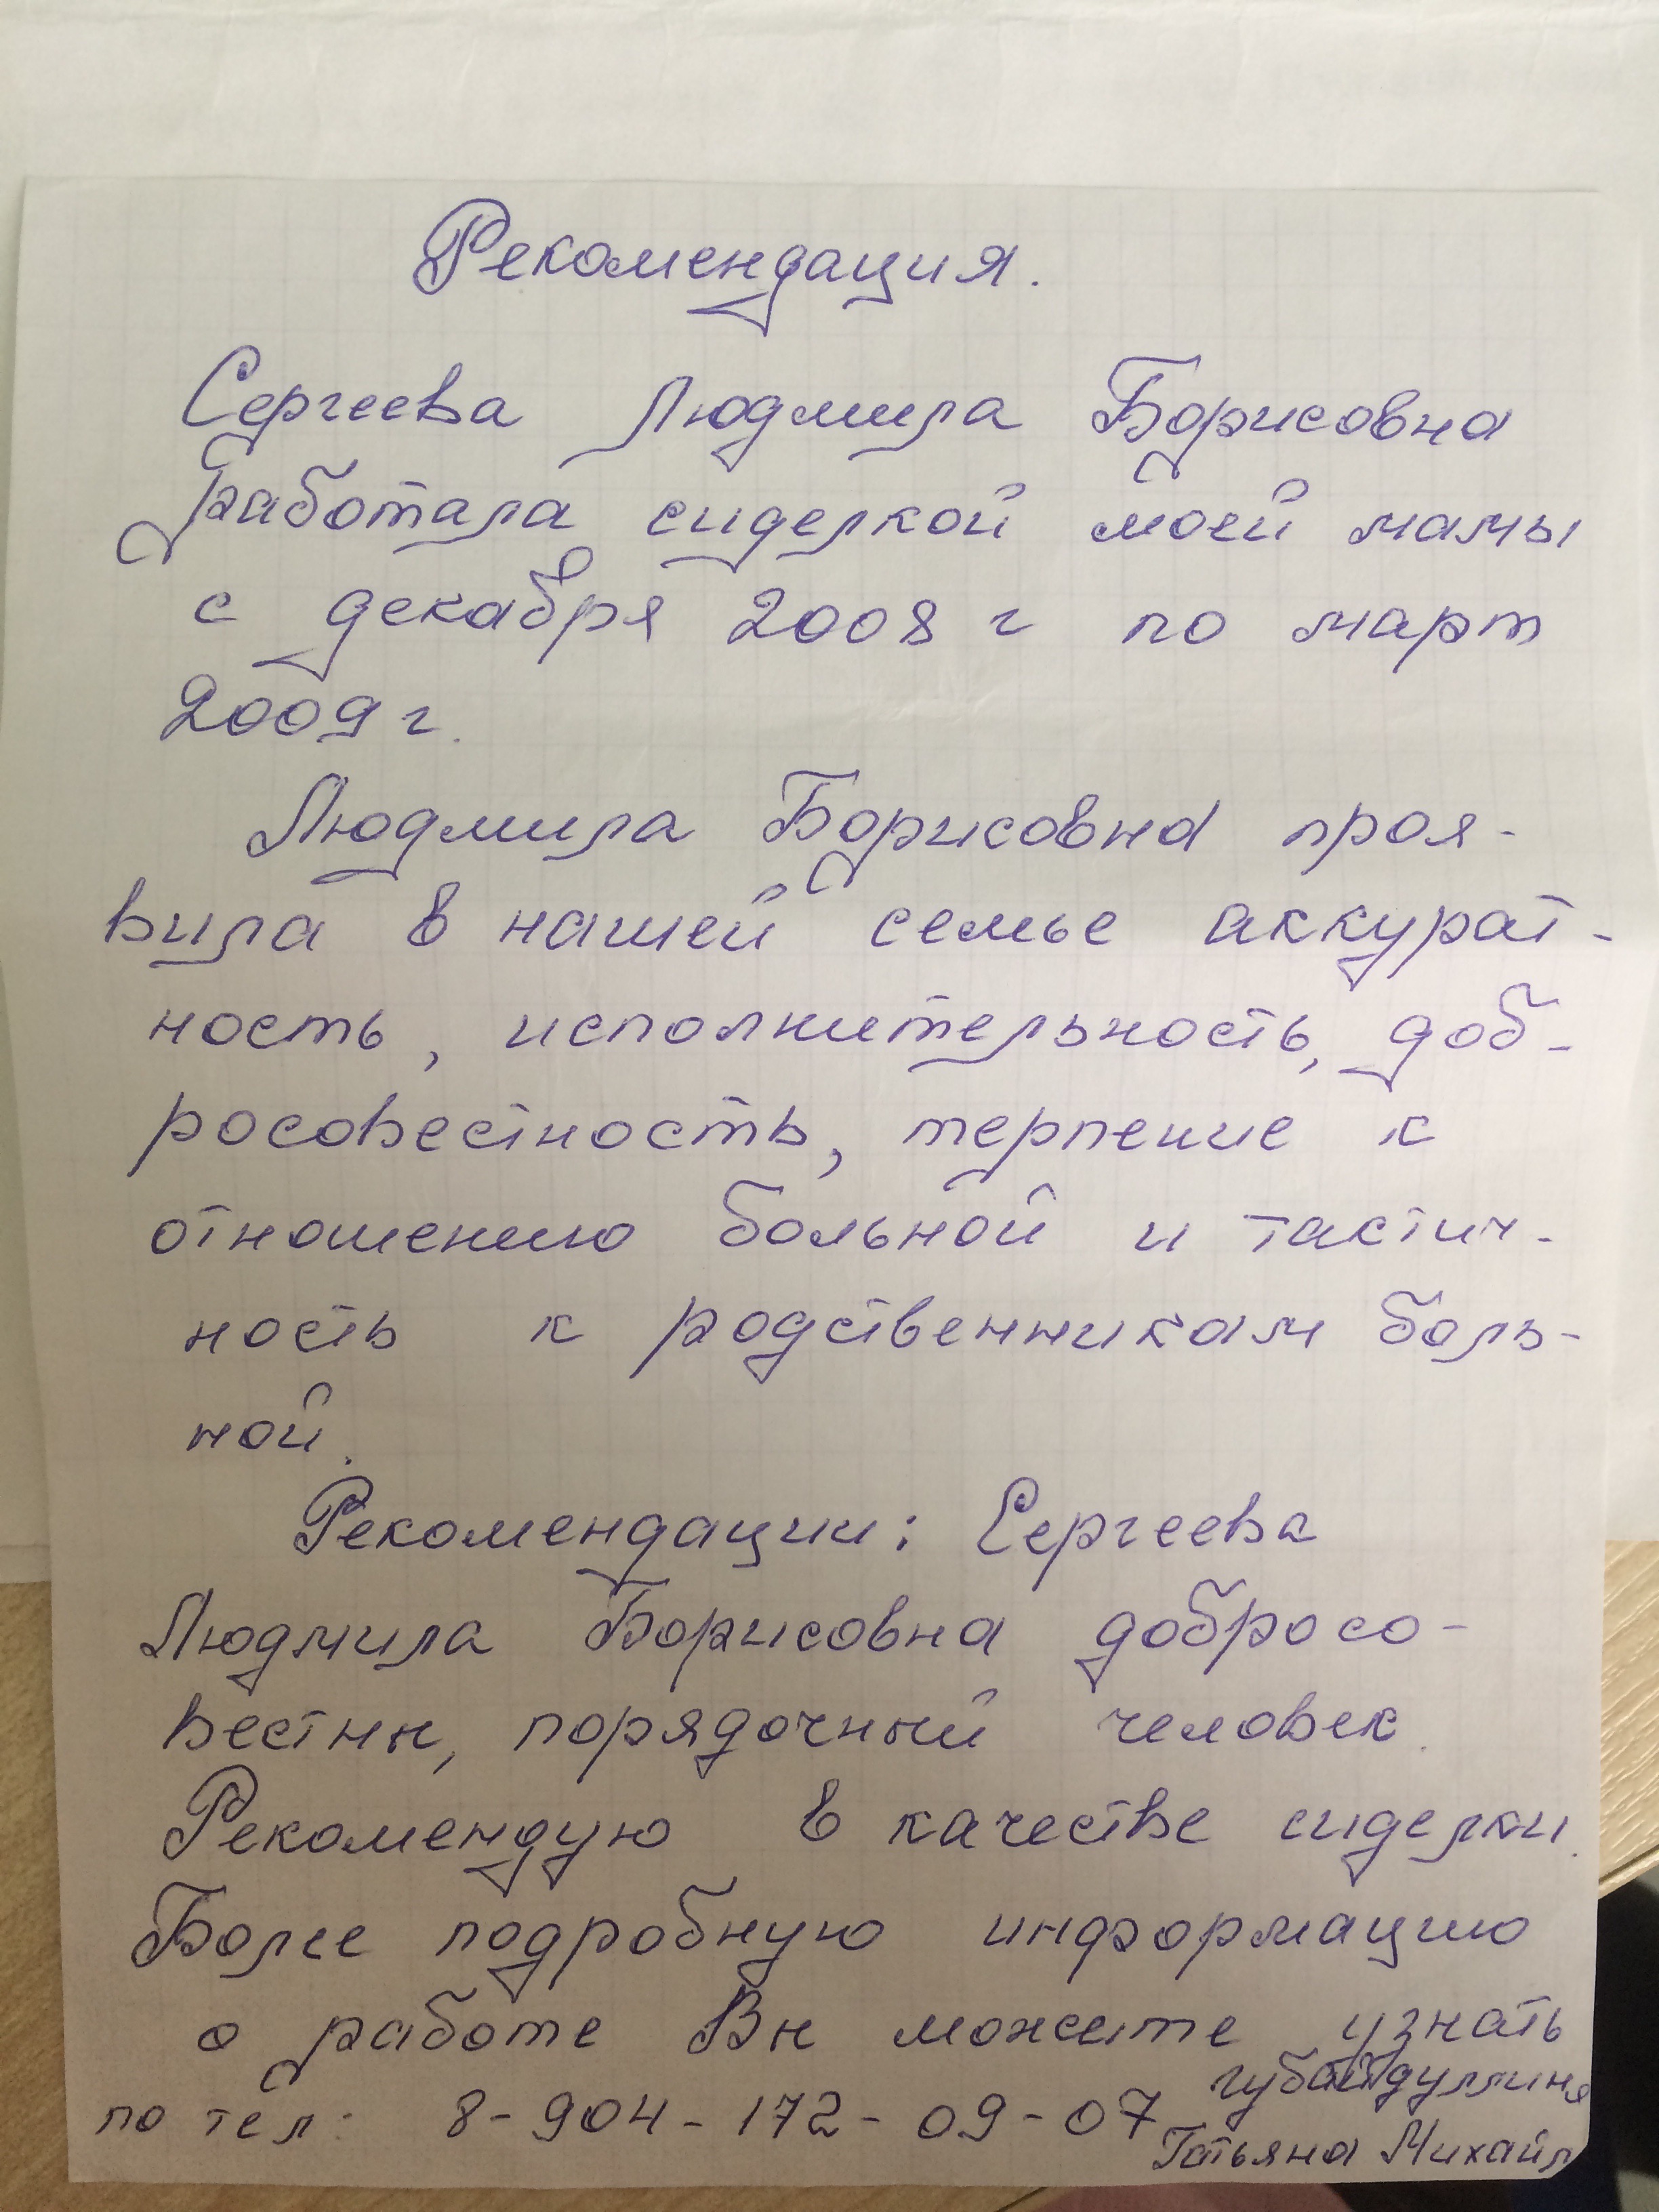 Рекомендация.
Сергеева Людмила Борисовна
работала сиделкой моей мамы
с декабря 2008 г по март
2009 г.
Людмила Борисовна проя-
вила в нашей семье аккурат-
ность, исполнительность, доб-
росовестность, терпение к
отношению больной и тактич-
ность к родственникам боль-
ной.
Рекомендации: Сергеева
Людмила Борисовна добросо-
вестны, порядочный человек.
Рекомендую в качестве сиделки.
Более подробную информацию
о работе Вы можете узнать
по тел: 8-904-172-09-07
Губайдуллина
Татьяна Михайл